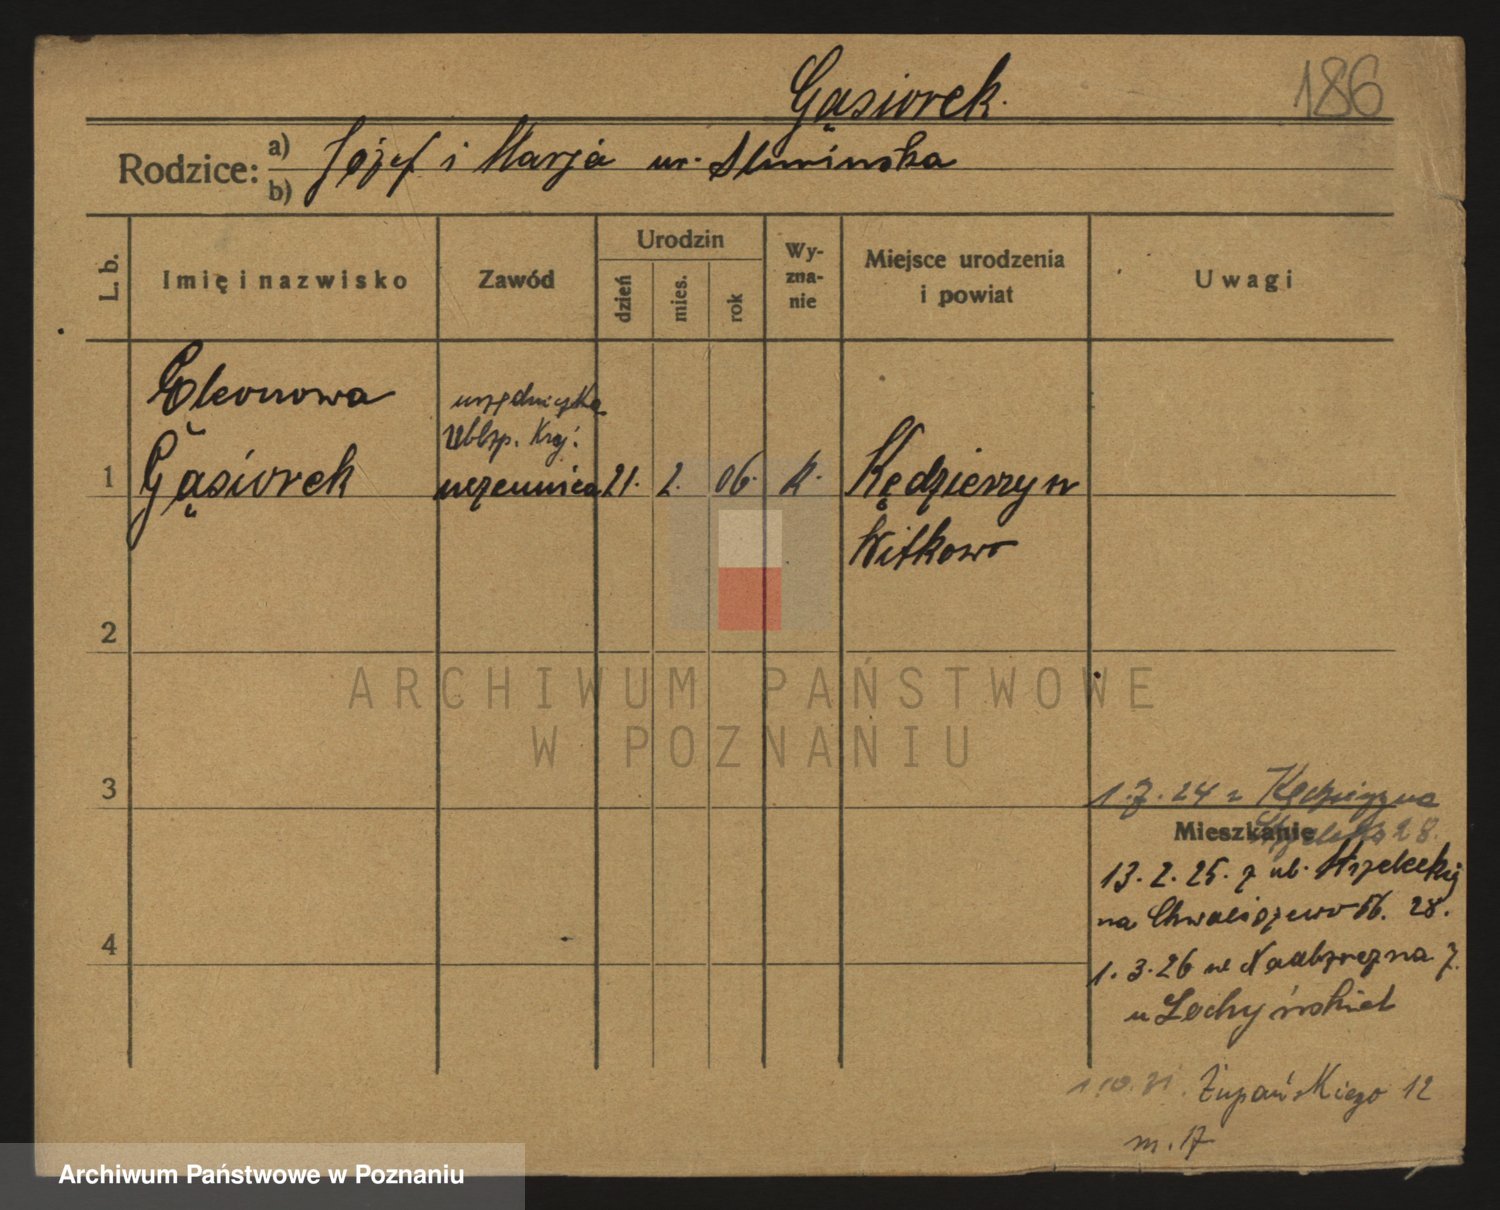 Gąsiorek.
186
Rodzice: a) Józef i Marja ur. Śliwińska
b)
L. b.
Imię i nazwisko
Zawód
Urodzin
dzień
mies.
rok
Wy-
zna-
nie
Miejsce urodzenia
i powiat
Uwagi
Eleonowa
urzędniczka
Ubezp. Kraj.
1 Gąsiorek uczennica 21. 2. 06. k. Kędzierzyn
Witkowo
2
ARCHIWUM PAŃSTWOWE
W POZNANIU
3
1.7.24 z Kędzierzyna
28.
Mieszkanie
13.2.25. z ul. Strzeleckiej
na Chwaliszewo 56. 28.
4
1.3.26 w Nadbrzeżna 7.
u Zochyńskiet
1.10.31. Żupańskiego 12
m. 17
Archiwum Państwowe w Poznaniu